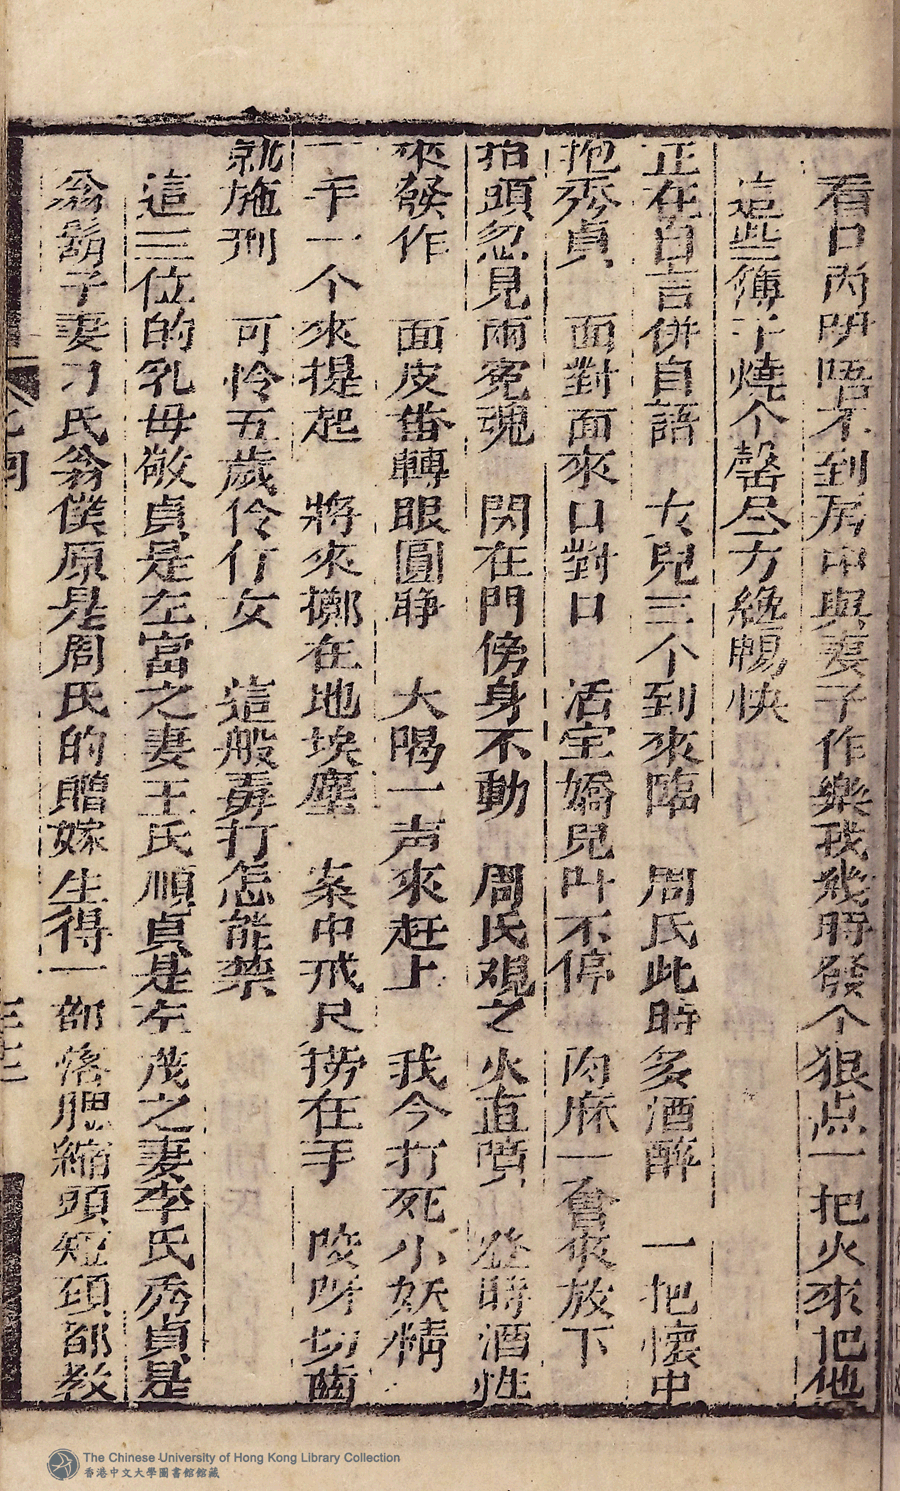 看口内明唔不到房中與妻子作樂我幾時發个狠点一把火來把他
這些簿子燒个罄尽方纔暢快
正在自言併自語　女兒三个到來臨　周氏此時多酒醉　一把懷中
抱秀貞　面對面來口對口　活宝嬌兒叶不停　肉麻一會來放下
抬頭忽見兩冤魂　閃在門傍身不動　周氏覌之火直噴　登時酒性
來發作　面皮畨轉眼圓睁　大喝一声來赶上　我今打死小妖精
一手一个來提起　將來擲在地埃塵　案中戒尺撈在手　咬呀切齒
就施刑　可怜五歲伶仃女　這般弄打怎能禁
這三位的乳母敬貞是左富之妻王氏順貞是左茂之妻李氏秀貞是
翁鬍子妻刁氏翁僕原是周氏的贈嫁生得一部落腮縮頭短頸都教
The Chinese University of Hong Kong Library Collection
香港中文大學圖書館館藏